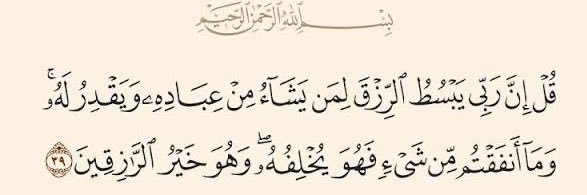 بِسْمِ اللَّهِ الرَّحْمَٰنِ الرَّحِيمِ
قُلْ إِنَّ رَبِّي يَبْسُطُ الرِّزْقَ لِمَن يَشَآءُ مِنْ عِبَادِهِۦ وَيَقْدِرُ لَهُۥ ۚ
وَمَآ أَنفَقْتُم مِّن شَىْءٍ فَهُوَ يُخْلِفُهُۥ ۖ وَهُوَ خَيْرُ الرَّٰزِقِينَ ٣٩